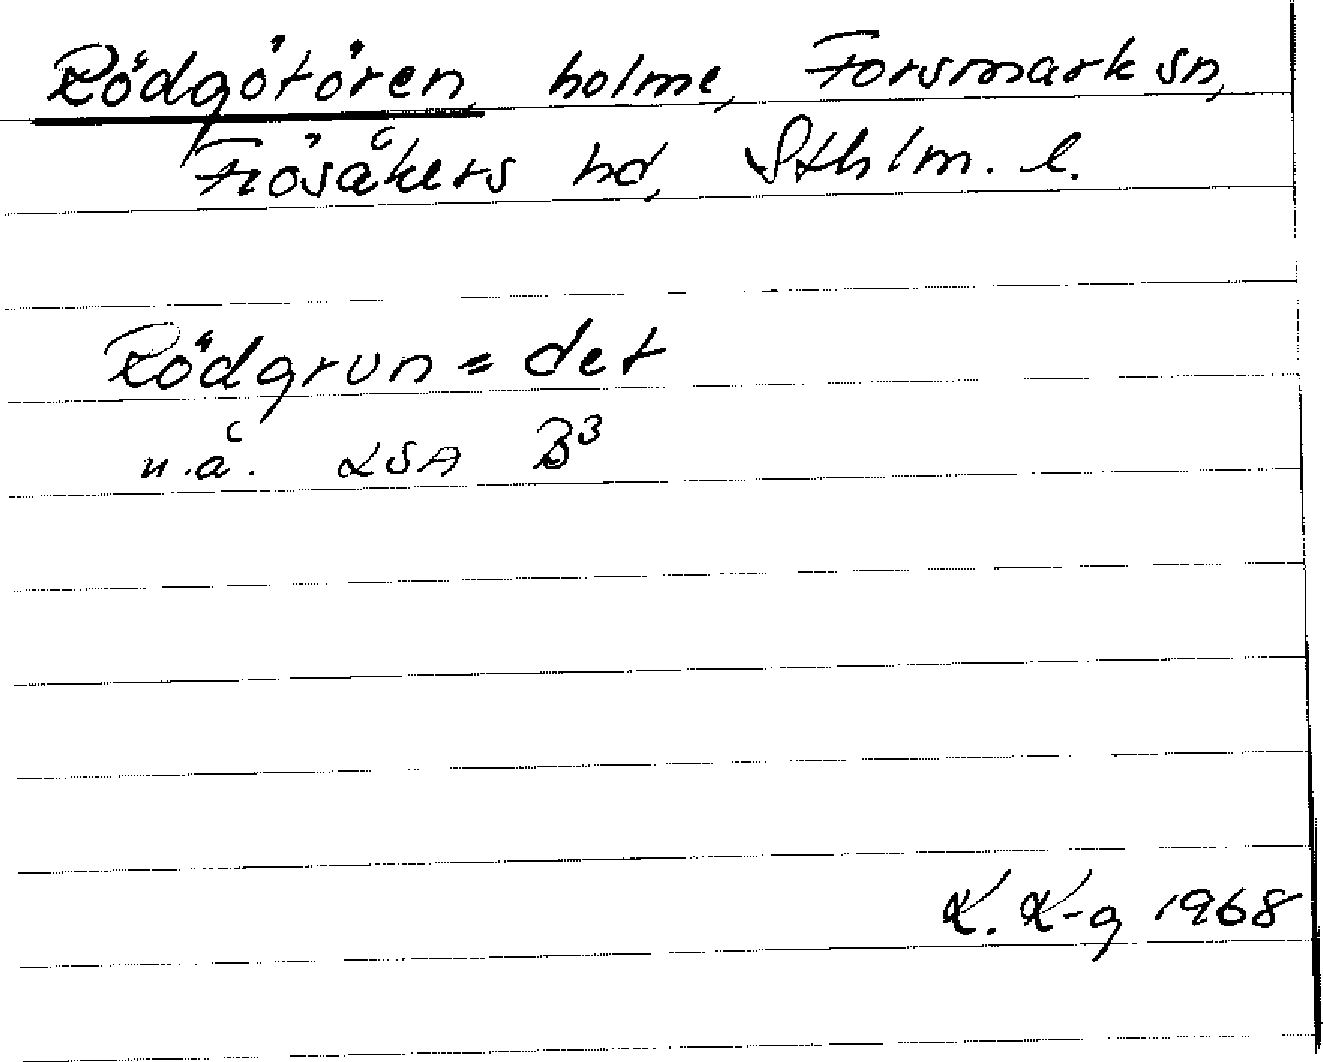 Rödgötören, holme, Forsmark sn,
Frösåkers hd, Sthlm. l.
Rödgrun = det
n.å. LSA B³
K. K-g 1968